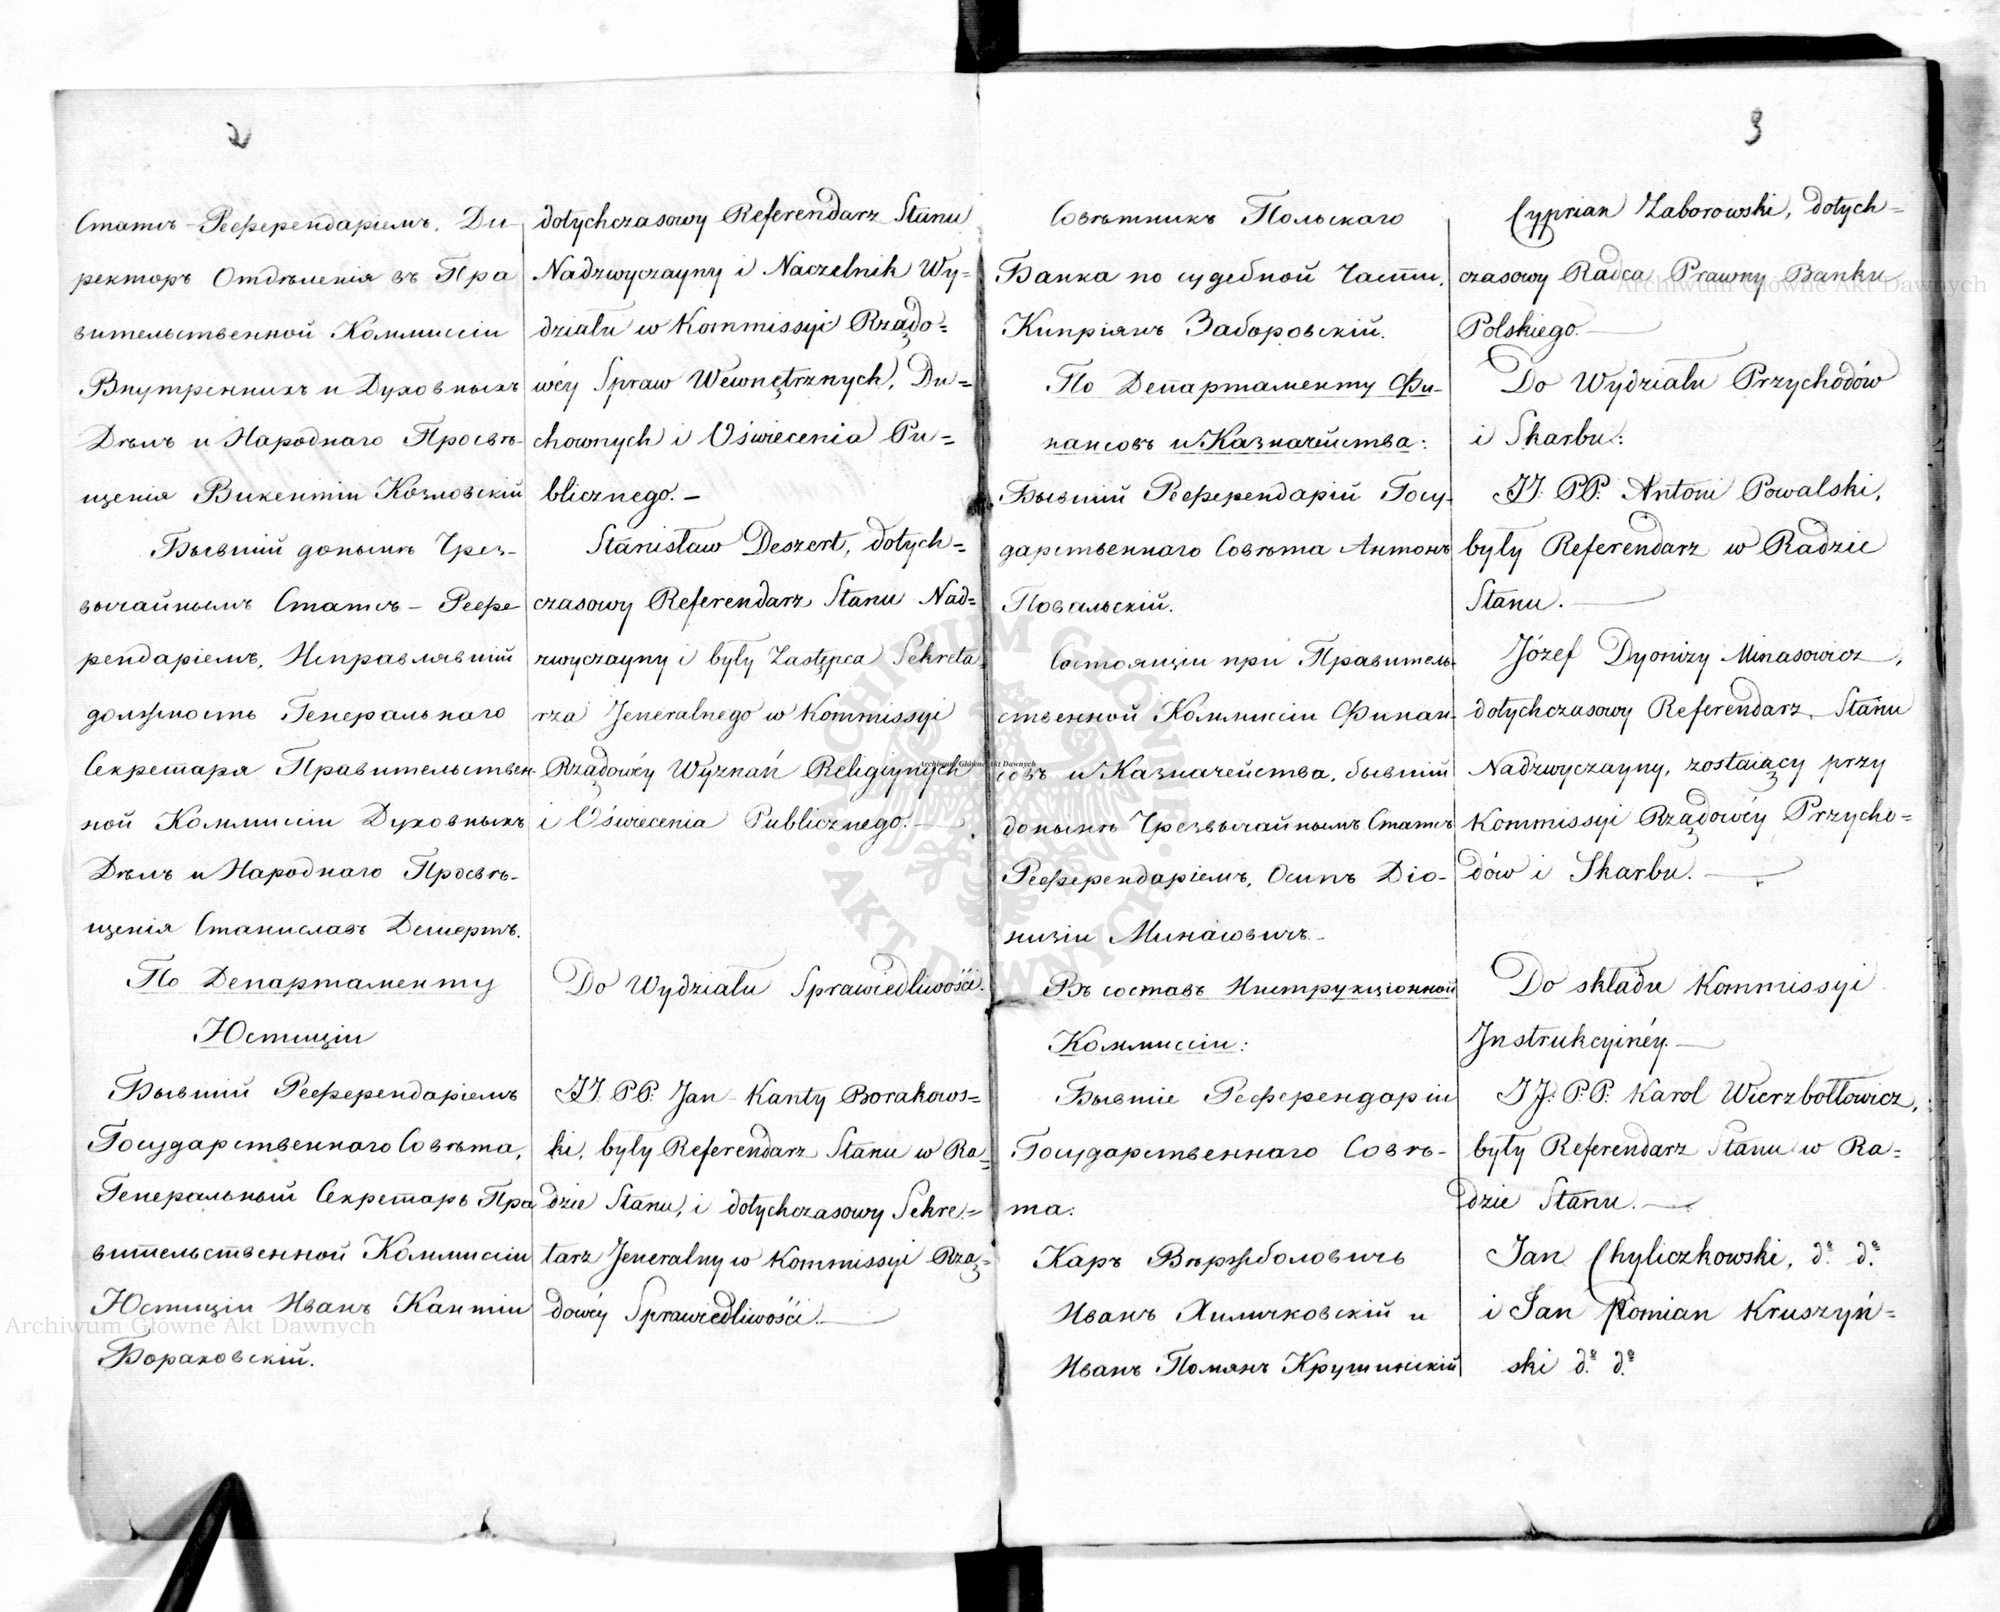 2
Статсъ-Референдаріемъ, Ди-
ректоръ Отдѣленія въ Пра
вительственной Коммиссіи
Внутреннихъ и Духовныхъ
Дѣлъ и Народнаго Просвѣ-
щенія Викентій Козловскій
Бывшій донынѣ Чрез-
вычайнымъ Статсъ-Рефе
рендаріемъ, Исправлявшій
должность Генеральнаго
Секретаря Правительствен-
ной Коммиссіи Духовныхъ
Дѣлъ и Народнаго Просвѣ-
щенія Станиславъ Дешертъ.
По Департаменту
Юстиціи
Бывшій Референдаріемъ
Государственнаго Совѣта,
Генеральный Секретарь Пра
вительственной Коммиссіи
Юстиціи Иванъ Кантій
Бораковскій.
dotychczasowy Referendarz Stanu
Nadzwyczayny i Naczelnik Wy=
działu w Kommissyi Rządo=
wéy Spraw Wewnętrznych, Du=
chownych i Oświecenia Pu=
blicznego.—
Stanisław Deszert, dotych=
czasowy Referendarz Stanu Nad=
zwyczayny i były Zastępca Sekreta
rza Jeneralnego w Kommissyi
Rządowéy Wyznań Religiynych
i Oświecenia Publicznego.—
Do Wydziału Sprawiedliwości.
JJ. PP. Jan Kanty Borakows=
ki, były Referendarz Stanu w Ra=
dzie Stanu, i dotychczasowy Sekre=
tarz Jeneralny w Kommissyi Rzą=
dowéy Sprawiedliwości.—
3
Совѣтникъ Польскаго
Банка по судебной Части,
Кипріянъ Заборовскій.
По Департаменту Фи-
нансовъ и Казначейства:
Бывшій Референдарій Госу-
дарственнаго Совѣта Антонъ
Повальскій.
Состоящій при Правитель-
ственной Коммиссіи Финан-
совъ и Казначейства, бывшій
донынѣ Чрезвычайнымъ Статсъ
Референдаріемъ, Осипъ Діо-
низій Минасовичъ.
Въ составъ Инструкціонной
Коммиссіи:
Бывшіе Референдаріи
Государственнаго Совѣ-
та:
Карлъ Вѣржболовичъ
Иванъ Хиличковскій и
Иванъ Помянъ Крушинскій
Cyprian Zaborowski, dotych=
czasowy Radca Prawny Banku
Polskiego.—
Do Wydziału Przychodów
i Skarbu:
JJ. PP. Antoni Powalski,
były Referendarz w Radzie
Stanu.—
Józef Dyonizy Minasowicz,
dotychczasowy Referendarz Stanu
Nadzwyczayny, zostaiący przy
Kommissyi Rządowéy Przycho=
dów i Skarbu.—
Do składu Kommissyi
Instrukcyinéy.—
JJ. PP. Karol Wierzbołłowicz,
były Referendarz Stanu w Ra=
dzie Stanu.—
Jan Chyliczkowski, do do
i Jan Pomian Kruszyń=
ski do do
ARCHIWUM GŁÓWNE
AKT DAWNYCH
Archiwum Główne Akt Dawnych
Archiwum Główne Akt Dawnych
Archiwum Główne Akt Dawnych